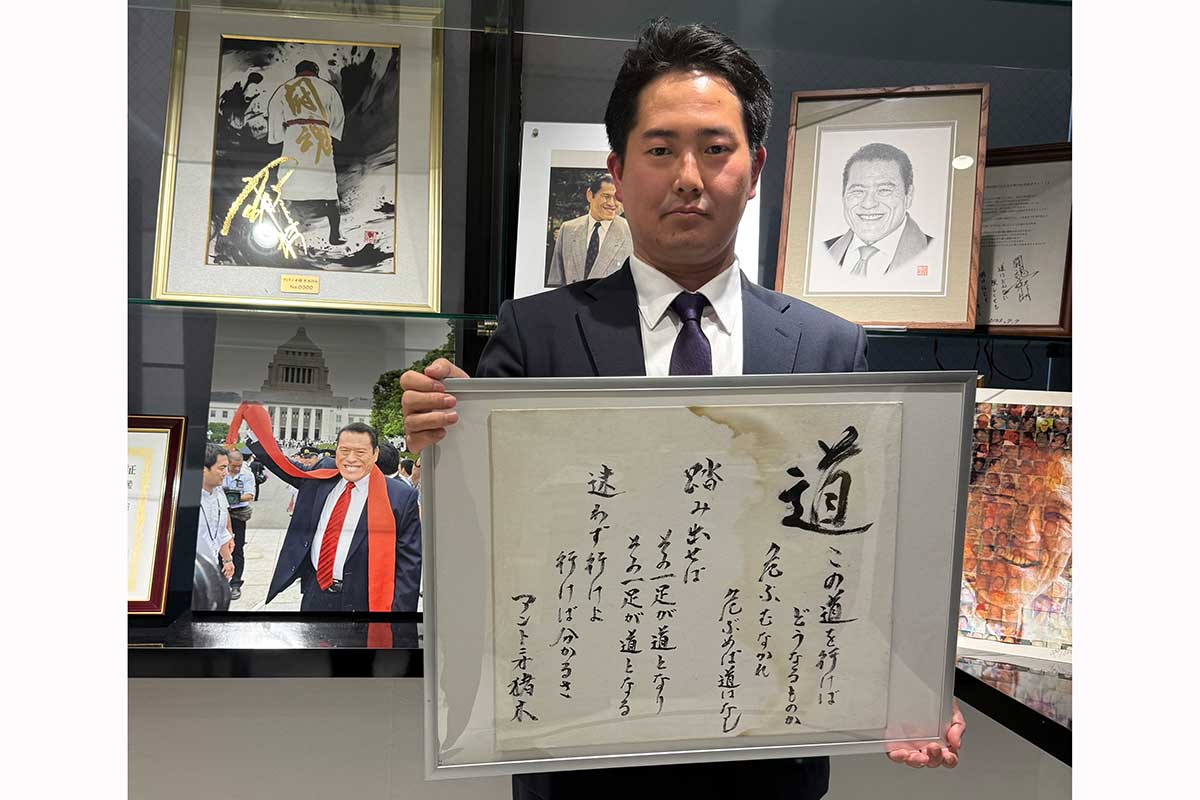 闘魂
No.0000
証
道
この道を行けば
どうなるものか
危ぶむなかれ
危ぶめば道はなし
踏み出せば
その一足が道となり
その一足が道となる
迷わず行けよ
行けば分かるさ
アントニオ猪木